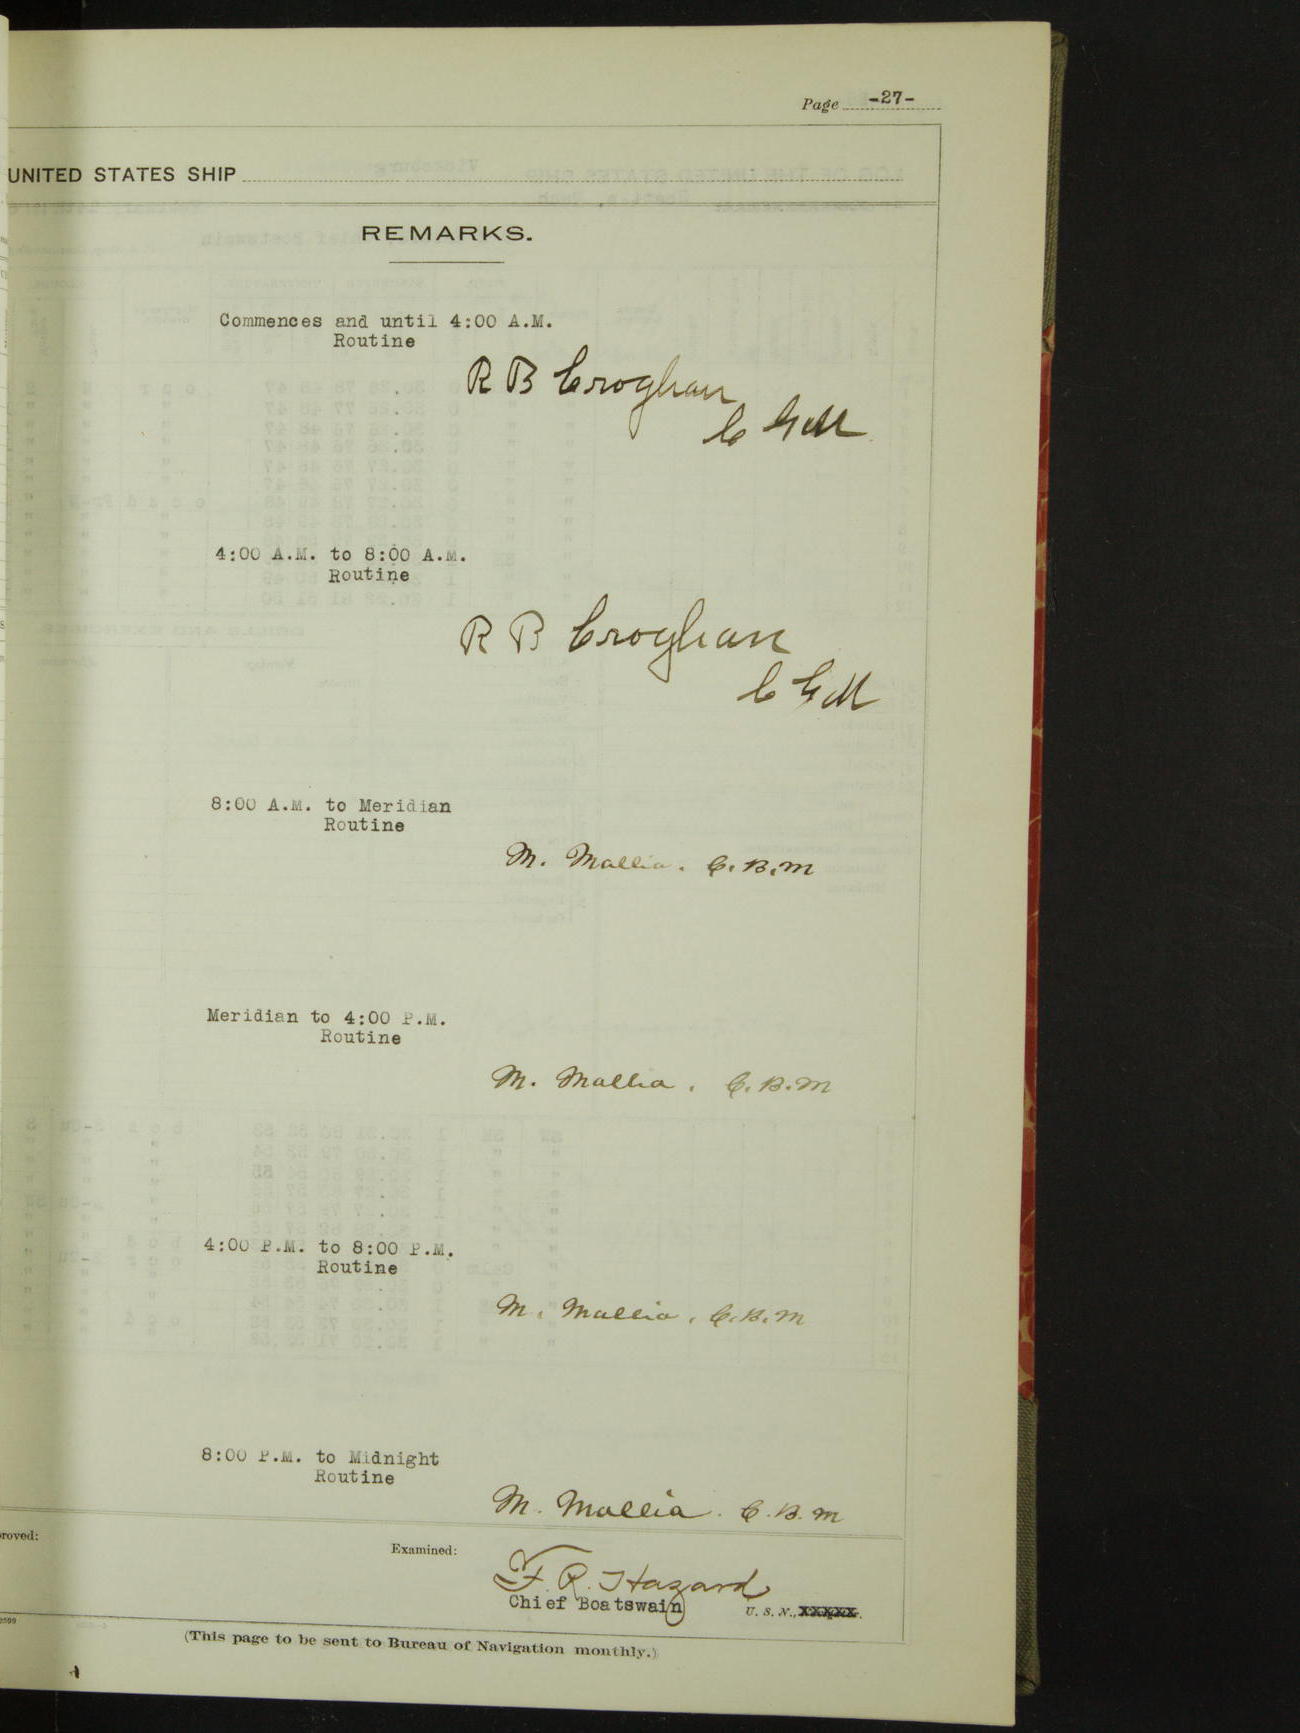 Page -27-
UNITED STATES SHIP
REMARKS.
Commences and until 4:00 A.M.
Routine
R B Croghan
C G M
4:00 A.M. to 8:00 A.M.
Routine
R B Croghan
C G M
8:00 A.M. to Meridian
Routine
M. Mallia. C.B.M
Meridian to 4:00 P.M.
Routine
M. Mallia. C.B.M
4:00 P.M. to 8:00 P.M.
Routine
M. Mallia. C.B.M
8:00 P.M. to Midnight
Routine
M. Mallia. C.B.M
roved:
Examined:
F. R. Hazard
Chief Boatswain U. S. N., xxxxx.
(This page to be sent to Bureau of Navigation monthly.)